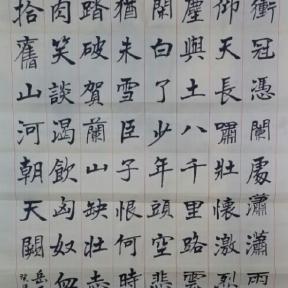 衝冠憑闌處瀟瀟雨
仰天長嘯壯懷激烈
塵與土八千里路雲
閑白了少年頭空悲
猶未雪臣子恨何時
踏破賀蘭山缺壯志
肉笑談渴飲匈奴血
拾舊山河朝天闕
岳